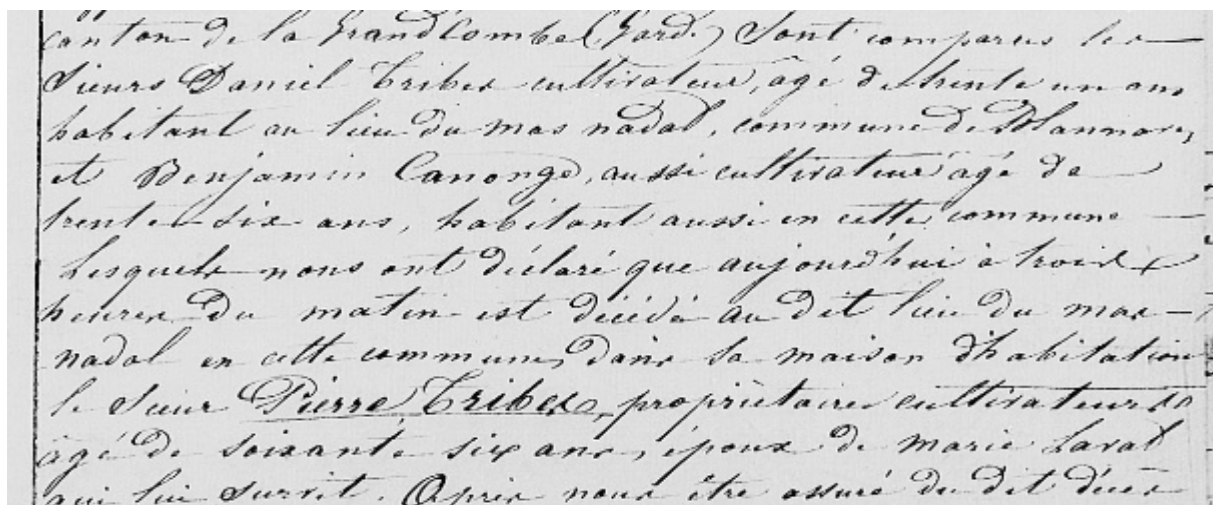 canton de la Grand'Combe (Gard.) Sont comparus les
Sieurs Daniel Tribes cultivateur, âgé de trente un ans
habitant au lieu du mas nadal, commune de Blannaves,
et Benjamin Canonge, aussi cultivateur âgé de
trente six ans, habitant aussi en cette commune
Lesquels nous ont déclaré que aujourd'hui à trois
heures du matin est décédé au dit lieu du mas
nadal en cette commune, dans sa maison d'habitation
le Sieur Pierre Tribes, propriétaire cultivateur
âgé de soixante six ans, époux de marie Laval
qui lui survit. Après nous être assuré du dit décès